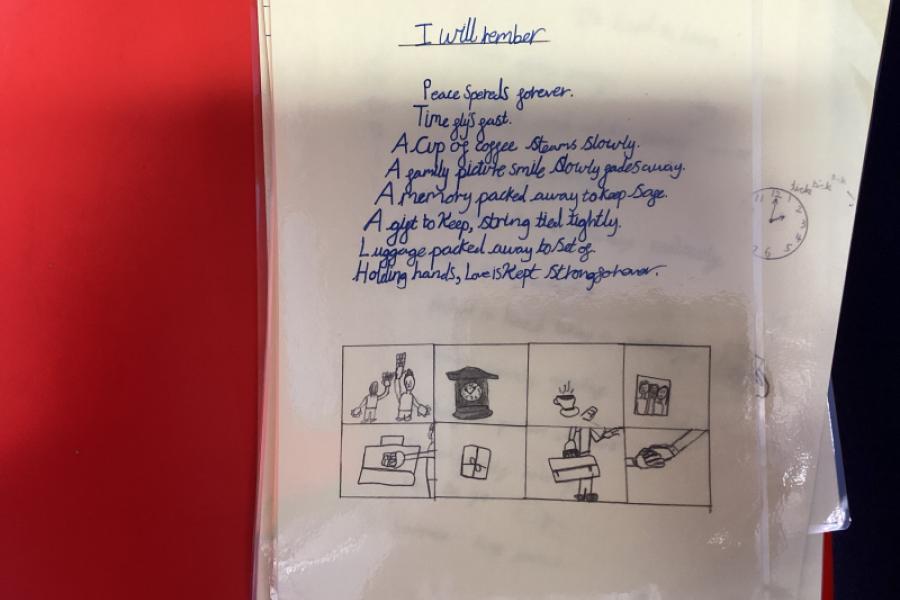 I will rember
Peace spereds forever.
Time fly's fast.
A Cup of coffee steams slowly.
A family picture smile slowly fades away.
A memory packed away to keep safe.
A gift to keep, string tied tightly.
Luggage packed away to set of.
Holding hands, Love is kept strong forever.
tick tick tick
11 12 1
2
3
4
5
6
7